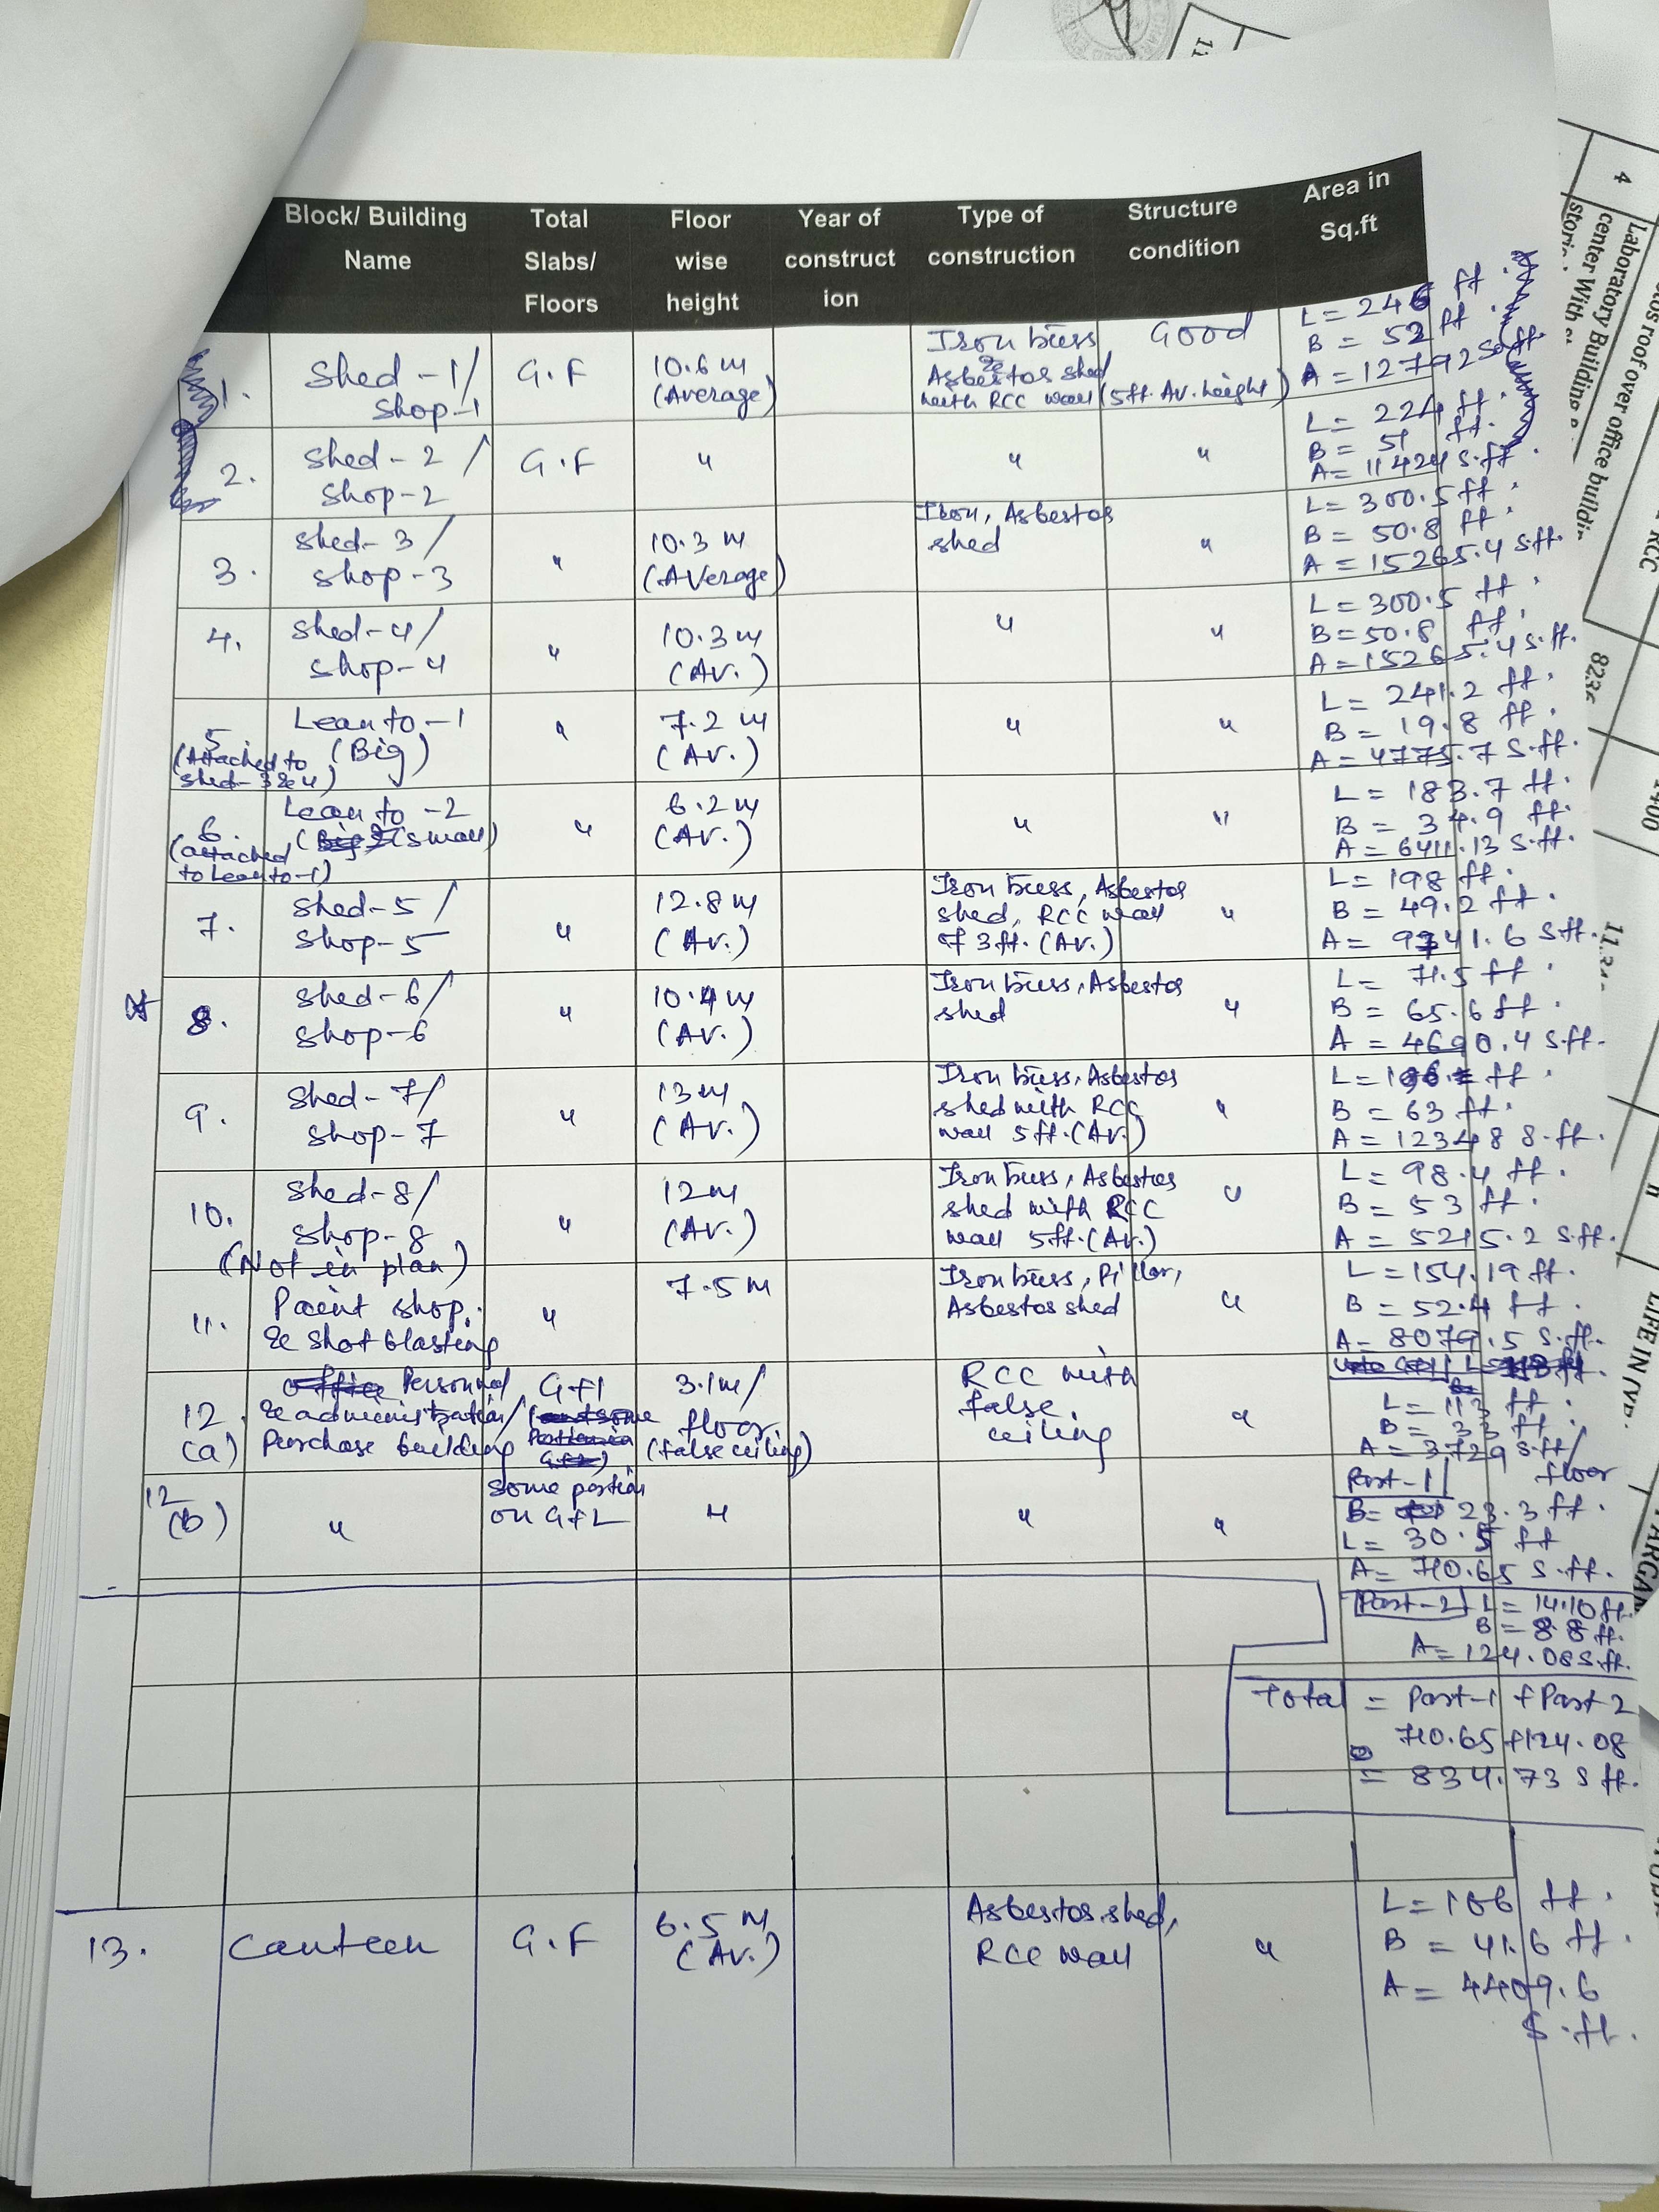 Block/ Building Name
Total Slabs/ Floors
Floor wise height
Year of construct ion
Type of construction
Structure condition
Area in Sq.ft
1.
Shed-1/
Shop-1
G.F
10.6 M
(Average)
Iron truss
&
Asbestos shed
with RCC wall (5ft. Av. height)
Good
L = 246 ft.
B = 52 ft.
A = 12792 Sq.ft.
2.
Shed-2/
Shop-2
G.F
"
"
"
L = 224 ft.
B = 51 ft.
A = 11424 S.ft.
3.
Shed-3/
Shop-3
"
10.3 M
(Average)
Iron, Asbestos
shed
"
L = 300.5 ft.
B = 50.8 ft.
A = 15265.4 S.ft.
4.
Shed-4/
Shop-4
"
10.3 M
(Av.)
"
"
L = 300.5 ft.
B = 50.8 ft.
A = 15265.4 S.ft.
5
(Attached to
shed-3 & 4)
Lean to-1
(Big)
"
7.2 M
(Av.)
"
"
L = 241.2 ft.
B = 19.8 ft.
A = 4775.7 S.ft.
6.
(attached
to Lean to-1)
Lean to-2
(small)
"
6.2 M
(Av.)
"
"
L = 183.7 ft.
B = 34.9 ft.
A = 6411.13 S.ft.
7.
Shed-5/
Shop-5
"
12.8 M
(Av.)
Iron truss, Asbestos
shed, RCC wall
of 3 ft. (Av.)
"
L = 198 ft.
B = 49.2 ft.
A = 9741.6 S.ft.
8.
Shed-6/
Shop-6
"
10.4 M
(Av.)
Iron truss, Asbestos
shed
"
L = 71.5 ft.
B = 65.6 ft.
A = 4690.4 S.ft.
9.
Shed-7/
Shop-7
"
13 M
(Av.)
Iron truss, Asbestos
shed with RCC
wall 5 ft. (Av.)
"
L = 196 ft.
B = 63 ft.
A = 12348 S.ft.
10.
Shed-8/
Shop-8
(Not in plan)
"
12 M
(Av.)
Iron truss, Asbestos
shed with RCC
wall 5 ft. (Av.)
"
L = 98.4 ft.
B = 53 ft.
A = 5215.2 S.ft.
11.
Paint shop.
& shot blasting
"
7.5 M
Iron truss, Pillar,
Asbestos shed
"
L = 154.19 ft.
B = 52.4 ft.
A = 8079.5 S.ft.
12.
(a)
Personnel
& administration/
Purchase building
G+1
3.1 M/
floor
(false ceiling)
RCC with
false
ceiling
"
L = 113 ft.
B = 33 ft.
A = 3729 S.ft/
floor
12
(b)
"
Some portion
on G+2
"
"
"
Part-1
B = 23.3 ft.
L = 30.5 ft
A = 710.65 S.ft.
Part-2 L = 14.10 ft.
B = 8.8 ft.
A = 124.08 S.ft.
Total = Part-1 + Part 2
710.65 + 124.08
= 834.73 S ft.
13.
Canteen
G.F
6.5 M
(Av.)
Asbestos shed,
RCC wall
"
L = 106 ft.
B = 41.6 ft.
A = 4409.6
S.ft.
4
Laboratory Building
center With